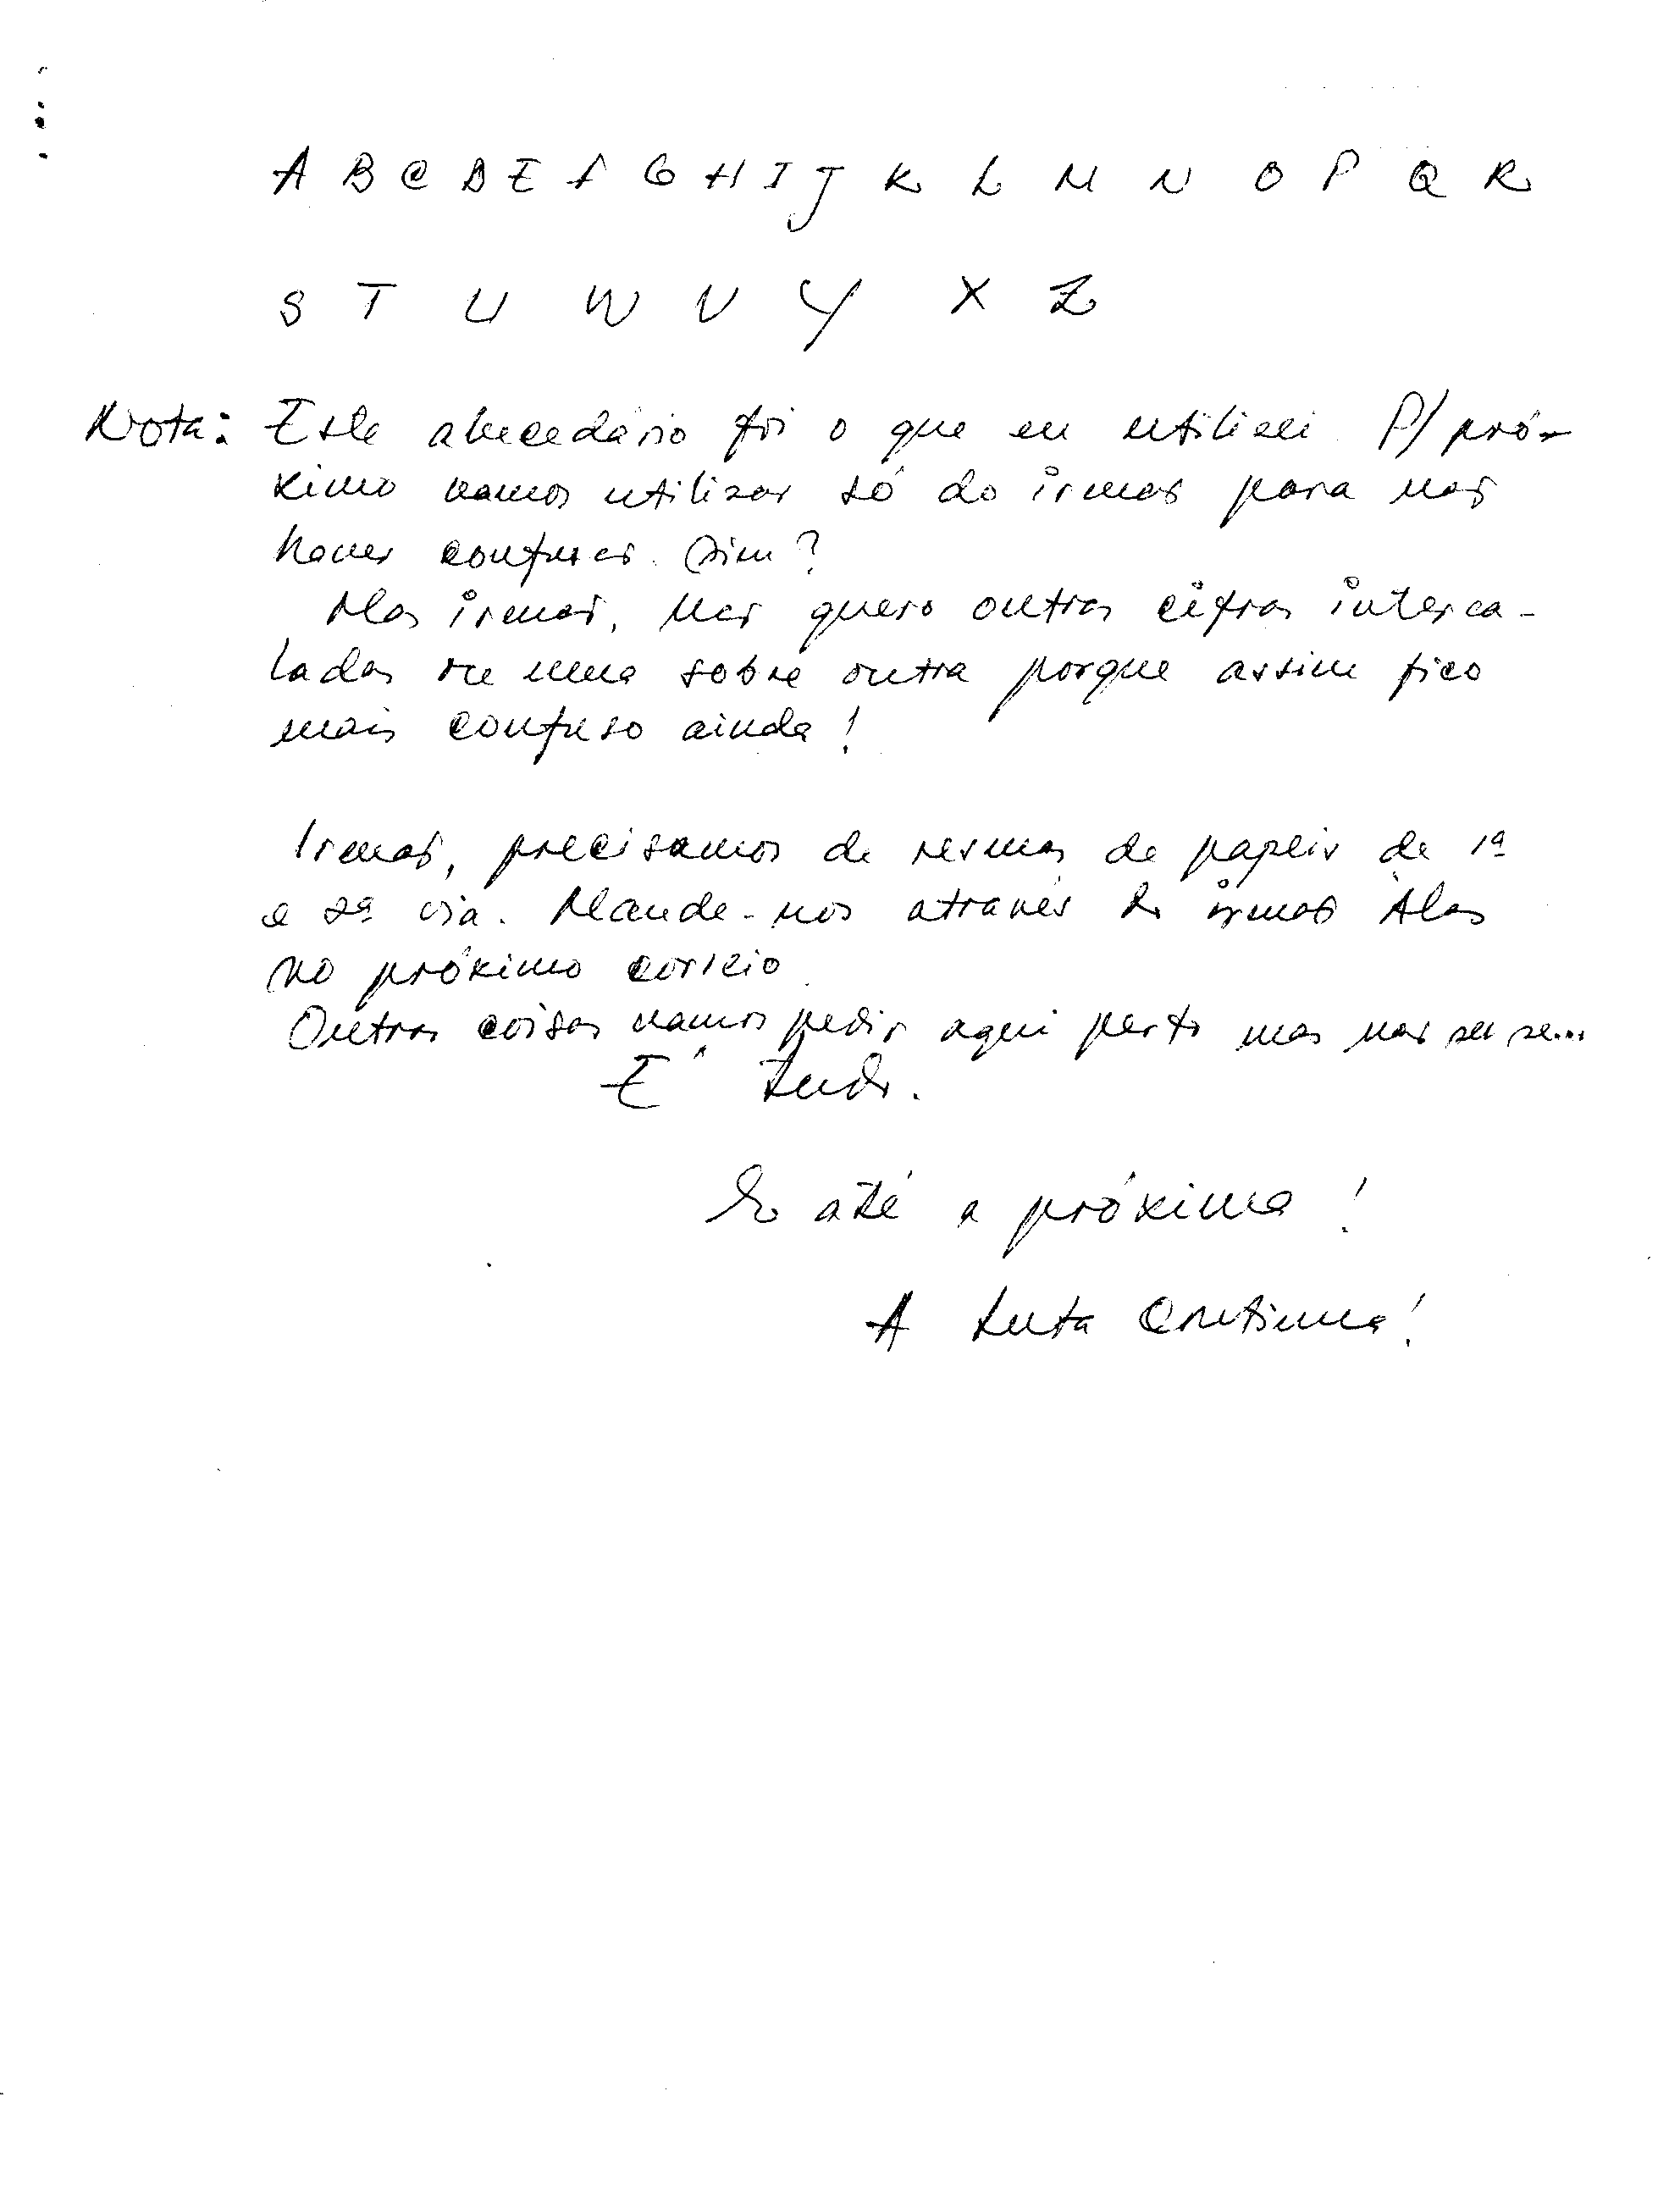 A B C D E F G H I J K L M N O P Q R
S T U W V Y X Z
Nota: Este abecedário foi o que eu utilizei. P/ pró-
ximo vamos utilizar só do irmão para não
haver confusão. Sim?
Mas irmão, não quero outras cifras interca-
ladas ou uma sobre outra porque assim fico
mais confuso ainda!
Irmão, precisamos de resmas de papeis de 1ª
e 2ª via. Mande-nos através do irmão
no próximo
Outras coisas vamos pedir aqui perto mas não sei se...
É tudo.
E até a próxima!
A Luta Continua!